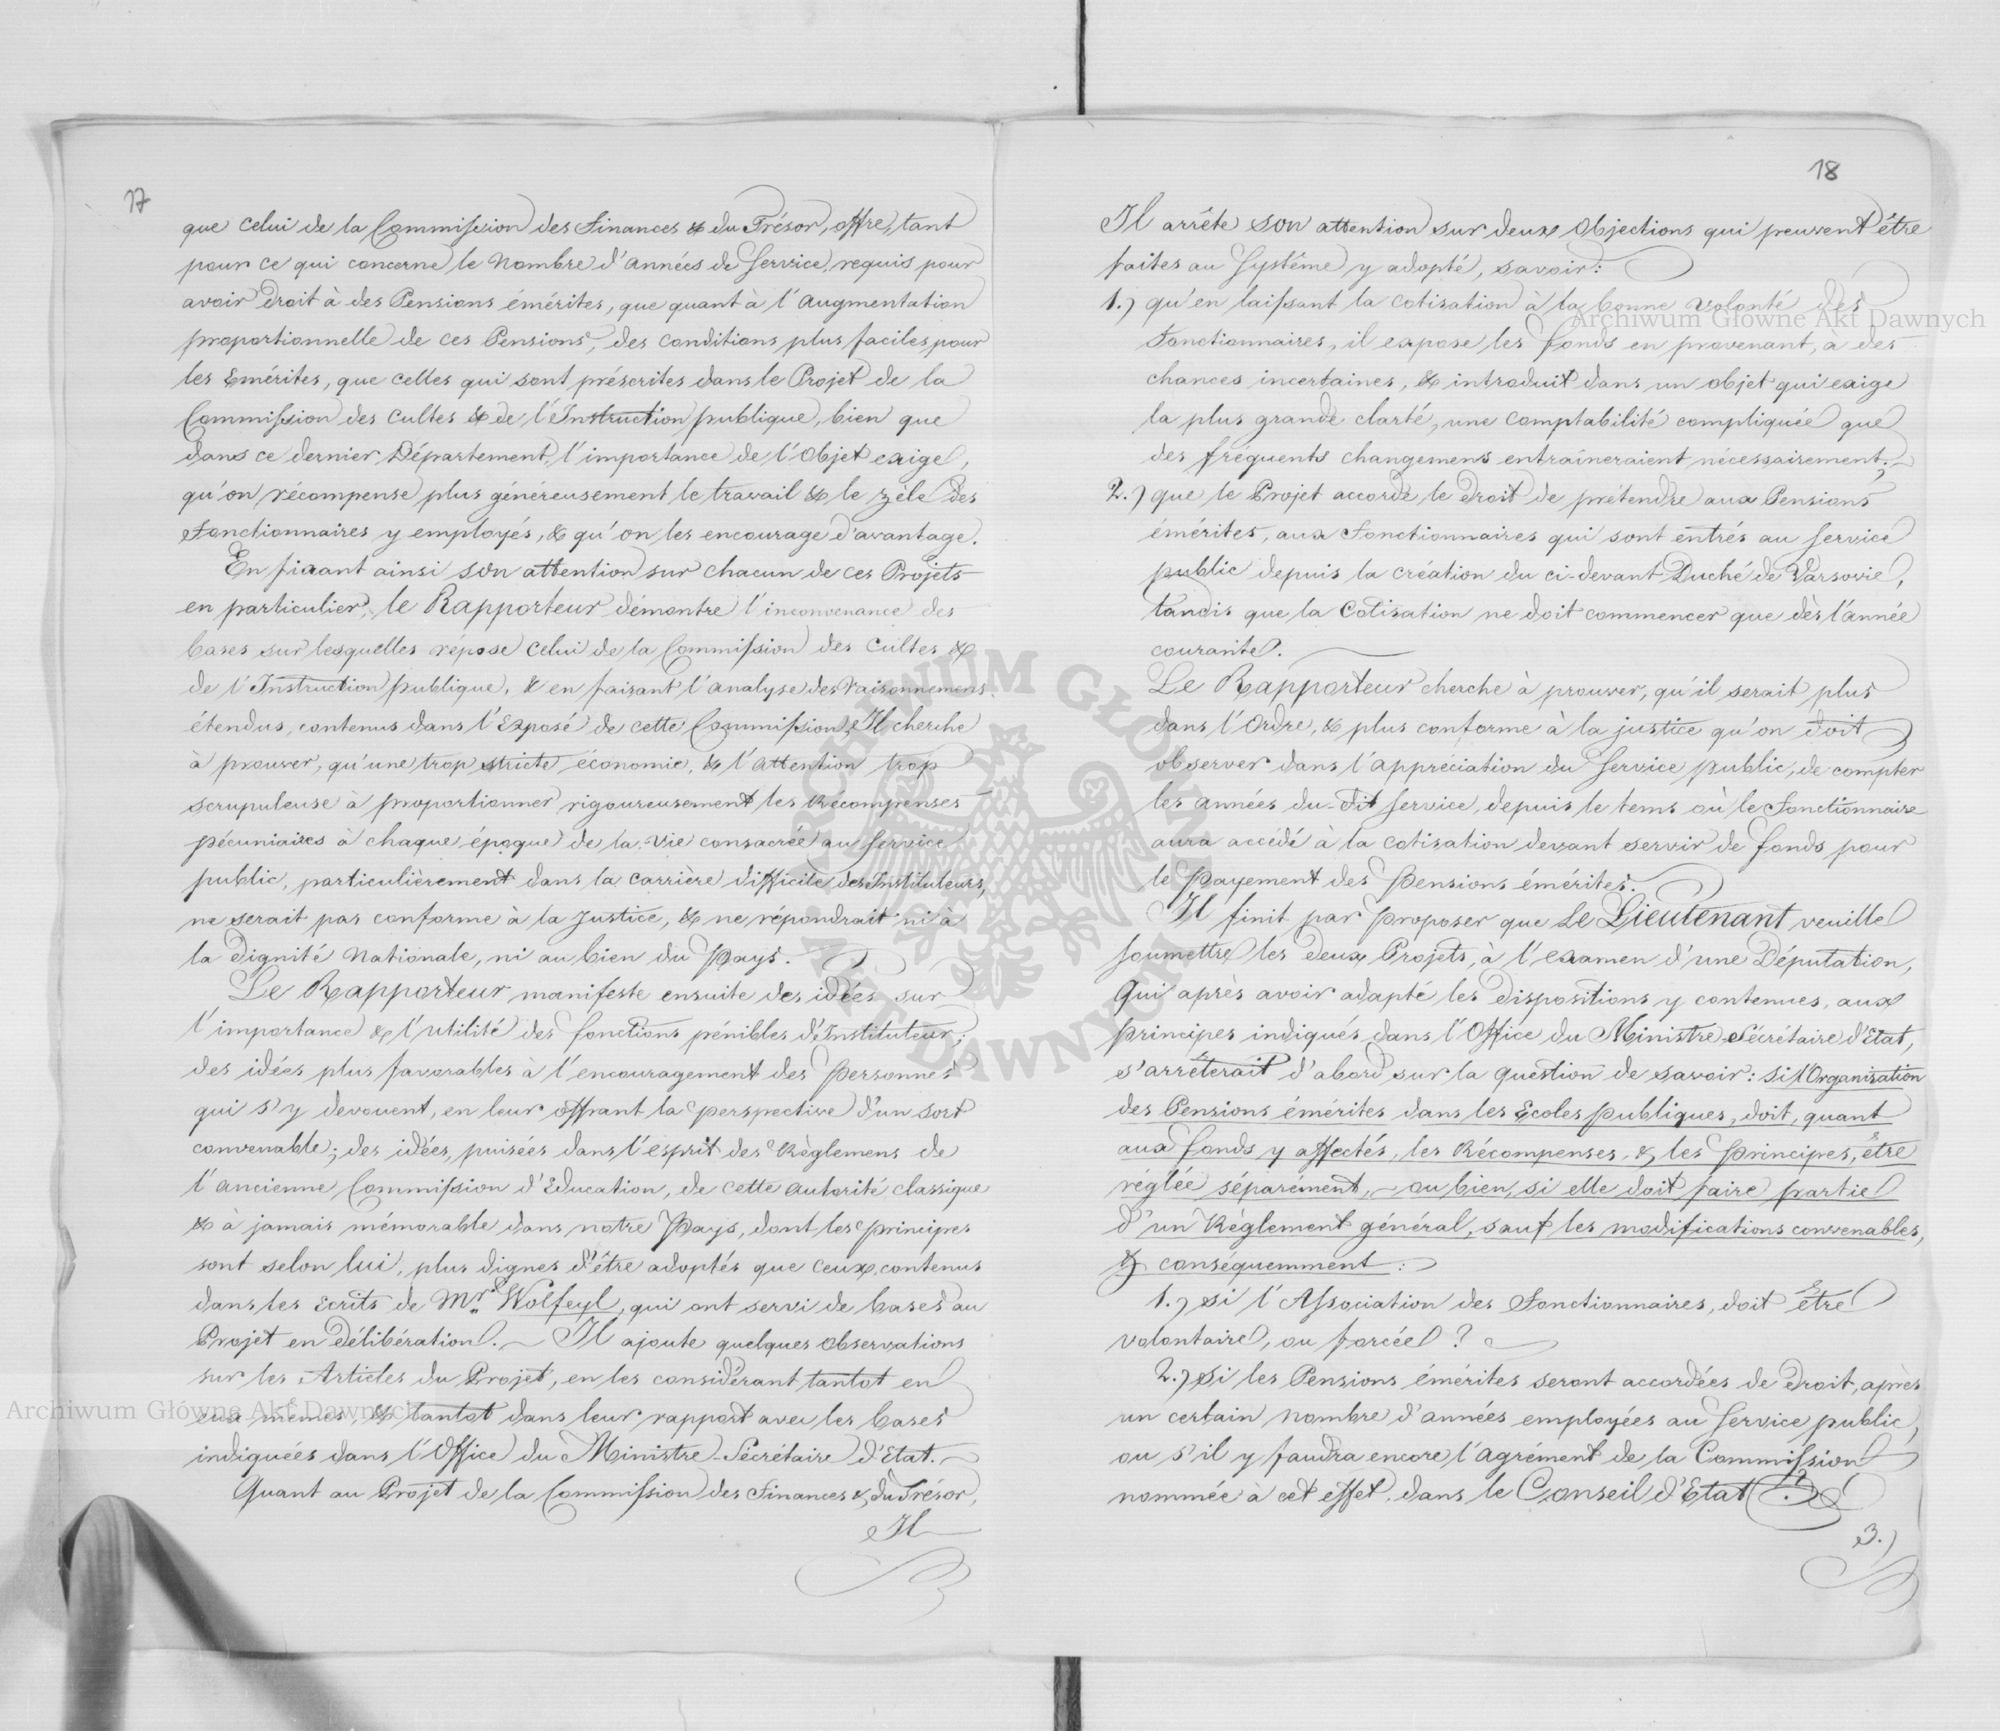 17
que celui de la Commission des Finances & du Trésor, offre, tant
pour ce qui concerne le Nombre d'années de Service, requis pour
avoir droit à des Pensions émérites, que quant à l'Augmentation
proportionnelle de ces Pensions, des conditions plus faciles, pour
les Emérites, que celles qui sont préscrites dans le Projet de la
Commission des Cultes & de l'Instruction publique, bien que
dans ce dernier Département, l'importance de l'Objet exige,
qu'on récompense plus généreusement le travail & le zèle des
Fonctionnaires y employés, & qu'on les encourage d'avantage.
En fixant ainsi son attention sur chacun de ces Projets
en particulier, le Rapporteur démontre l'inconvenance des
bases sur lesquelles répose celui de la Commission des Cultes &
de l'Instruction publique, & en faisant l'analyse des raisonnemens
étendus, contenus dans l'Exposé de cette Commission, Il cherche
à prouver, qu'une trop stricte économie, & l'attention trop
scrupuleuse à proportionner rigoureusement les Récompenses
pécuniaires à chaque époque de la vie consacrée au Service
public, particulièrement dans la carrière difficile des Instituteurs,
ne serait pas conforme à la Justice, & ne répondrait ni à
la Dignité Nationale, ni au bien du Pays.
Le Rapporteur manifeste ensuite des idées sur
l'importance & l'utilité des fonctions pénibles d'Instituteur;
des idées plus favorables à l'encouragement des Personnes
qui s'y devouent, en leur offrant la perspective d'un sort
convenable; des idées, puisées dans l'esprit des Règlemens de
l'ancienne Commission d'Education, de cette autorité classique
& à jamais mémorable dans notre Pays, dont les principes
sont selon lui, plus dignes d'être adoptés que ceux, contenus
dans les Ecrits de Mr. Wolfeyl, qui ont servi de bases au
Projet en Délibération. – Il ajoute quelques observations
sur les Articles du Projet, en les considérant tantot en
eux mêmes, & tantot dans leur rapport avec les bases
indiquées dans l'Office du Ministre Sécrétaire d'Etat. –
Quant au Projet de la Commission des Finances & du Trésor,
Il
18
Il arrête son attention sur deux Objections qui peuvent être
faites au Systême y adopté, savoir:
1.) qu'en laissant la cotisation à la bonne volonté des
Fonctionnaires, il expose les fonds en provenant, à des
chances incertaines, & introduit dans un objet qui exige
la plus grande clarté, une comptabilité compliquée que
des fréquents changemens entraîneraient nécessairement; –
2.) que le Projet accorde le droit de prétendre aux Pensions
émérites, aux Fonctionnaires qui sont entrés au Service
public depuis la création du ci-devant Duché de Varsovie,
tandis que la Cotisation ne doit commencer que dès l'année
courante.
Le Rapporteur cherche à prouver, qu'il serait plus
dans l'Ordre, & plus conforme à la justice qu'on doit
observer dans l'appréciation du Service public, de compter
les années du-dit Service, depuis le tems où le Fonctionnaire
aura accédé à la cotisation devant servir de fonds pour
le Payement des Pensions émérites.
Il finit par proposer que Le Lieutenant veuille
soumettre les deux Projets, à l'examen d'une Députation,
Qui après avoir adapté les dispositions y contenues, aux
principes indiqués dans l'Office du Ministre Sécrétaire d'Etat,
s'arrêterait d'abord sur la Question de savoir: Si l'Organisation
des Pensions émérites dans les Ecoles publiques, doit, quant
aux fonds y affectés, les Récompenses, & les Principes, être
réglée séparément, – ou bien, si elle doit faire partie
d'un Règlement général, sauf les modifications convenables,
& conséquemment: –
1.) Si l'Association des Fonctionnaires, doit être
volontaire, ou forcée? –
2.) Si les Pensions émérites seront accordées de Droit, après
un certain nombre d'années employées au Service public,
ou s'il y faudra encore l'agrément de la Commission
nommée à cet effet, dans le Conseil d'Etat?
3.)
Archiwum Główne Akt Dawnych
Archiwum Główne Akt Dawnych
ARCHIWUM GŁÓWNE AKT DAWNYCH